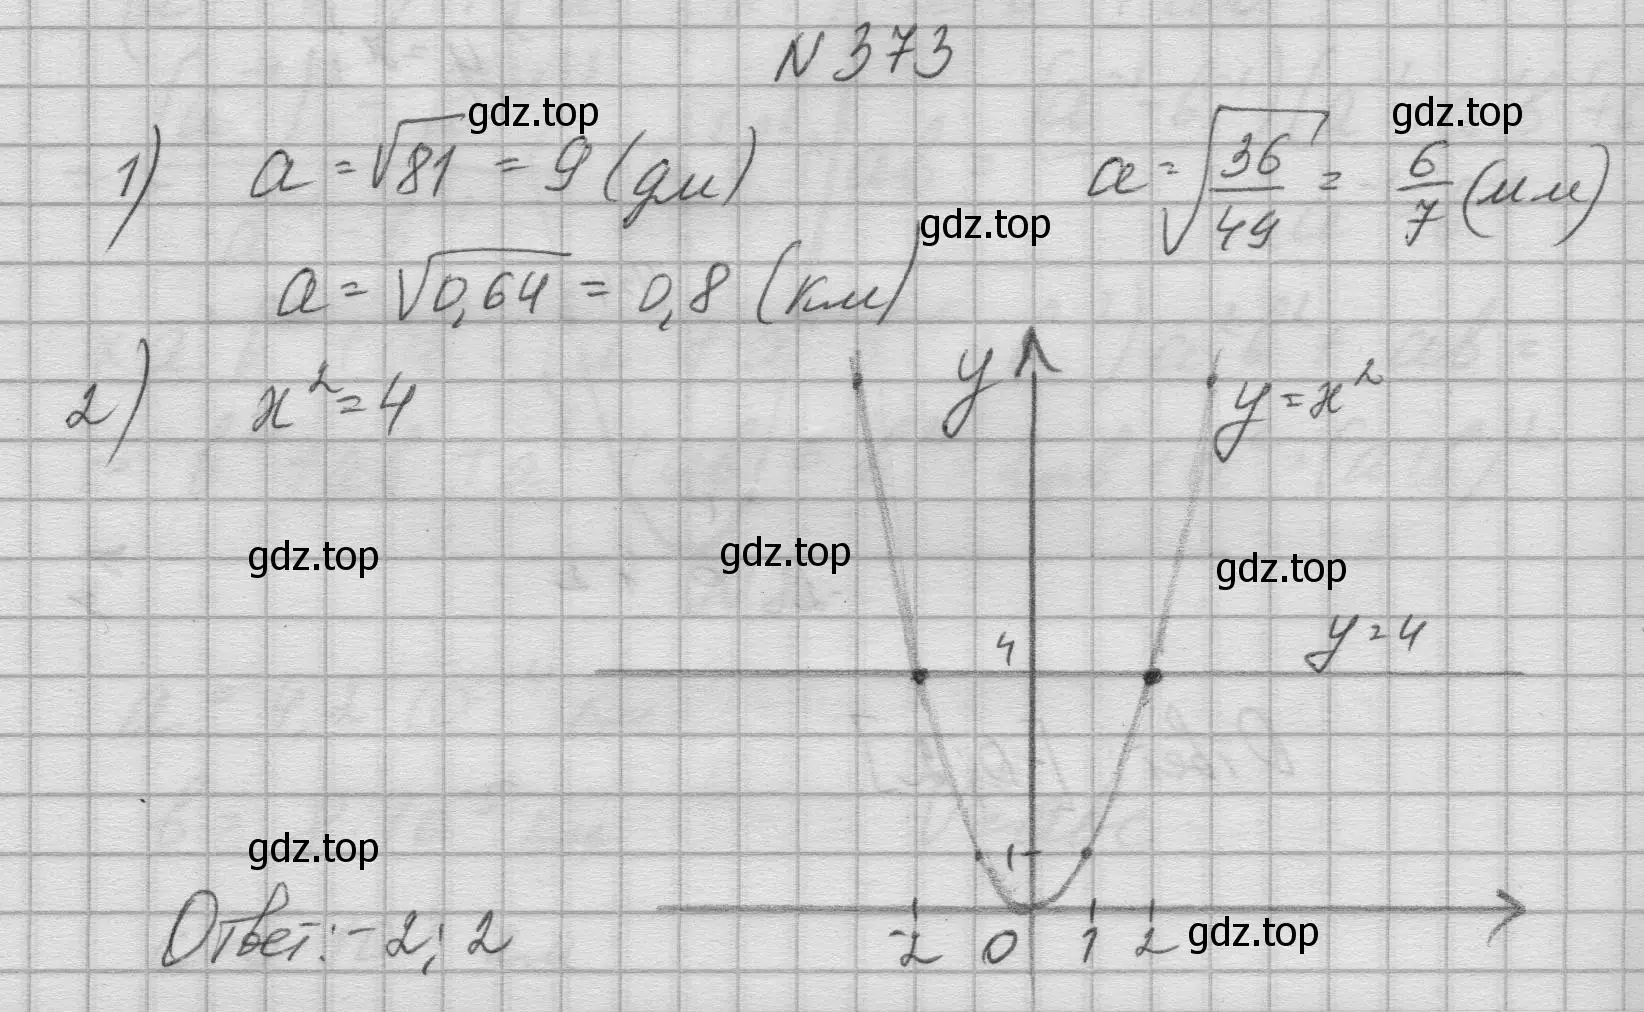 N 373
1) a = √81 = 9 (дм) a = √36/49 = 6/7 (мм)
gdz.top gdz.top
gdz.top
a = √0,64 = 0,8 (км)
2) x² = 4
y y = x²
gdz.top gdz.top gdz.top
4 y = 4
gdz.top
1
Ответ: -2; 2
-2 0 1 2 gdz.top